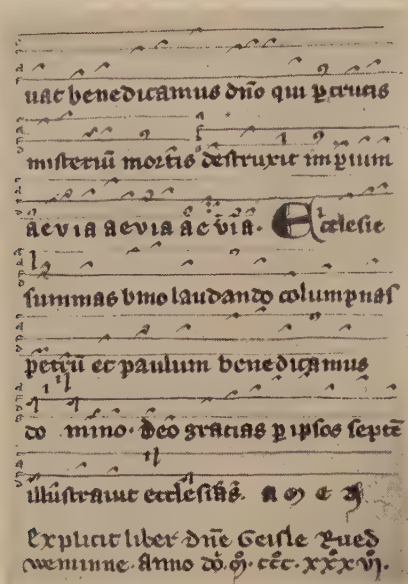 uat benedicamus dño qui ꝑ crucis
misteriũ mortis destruxit impium
aevia aevia aevia. Ecclesie
summas ymo laudando columpnas
petrũ et paulum benedicamus
do mino. deo gracias ꝑ ipsos septẽ
illustrauit ecclesias. a m e n
Explicit liber dñe Geisle Rued
weninne. anno dõ. m̊. ccc. xxx̊vj.